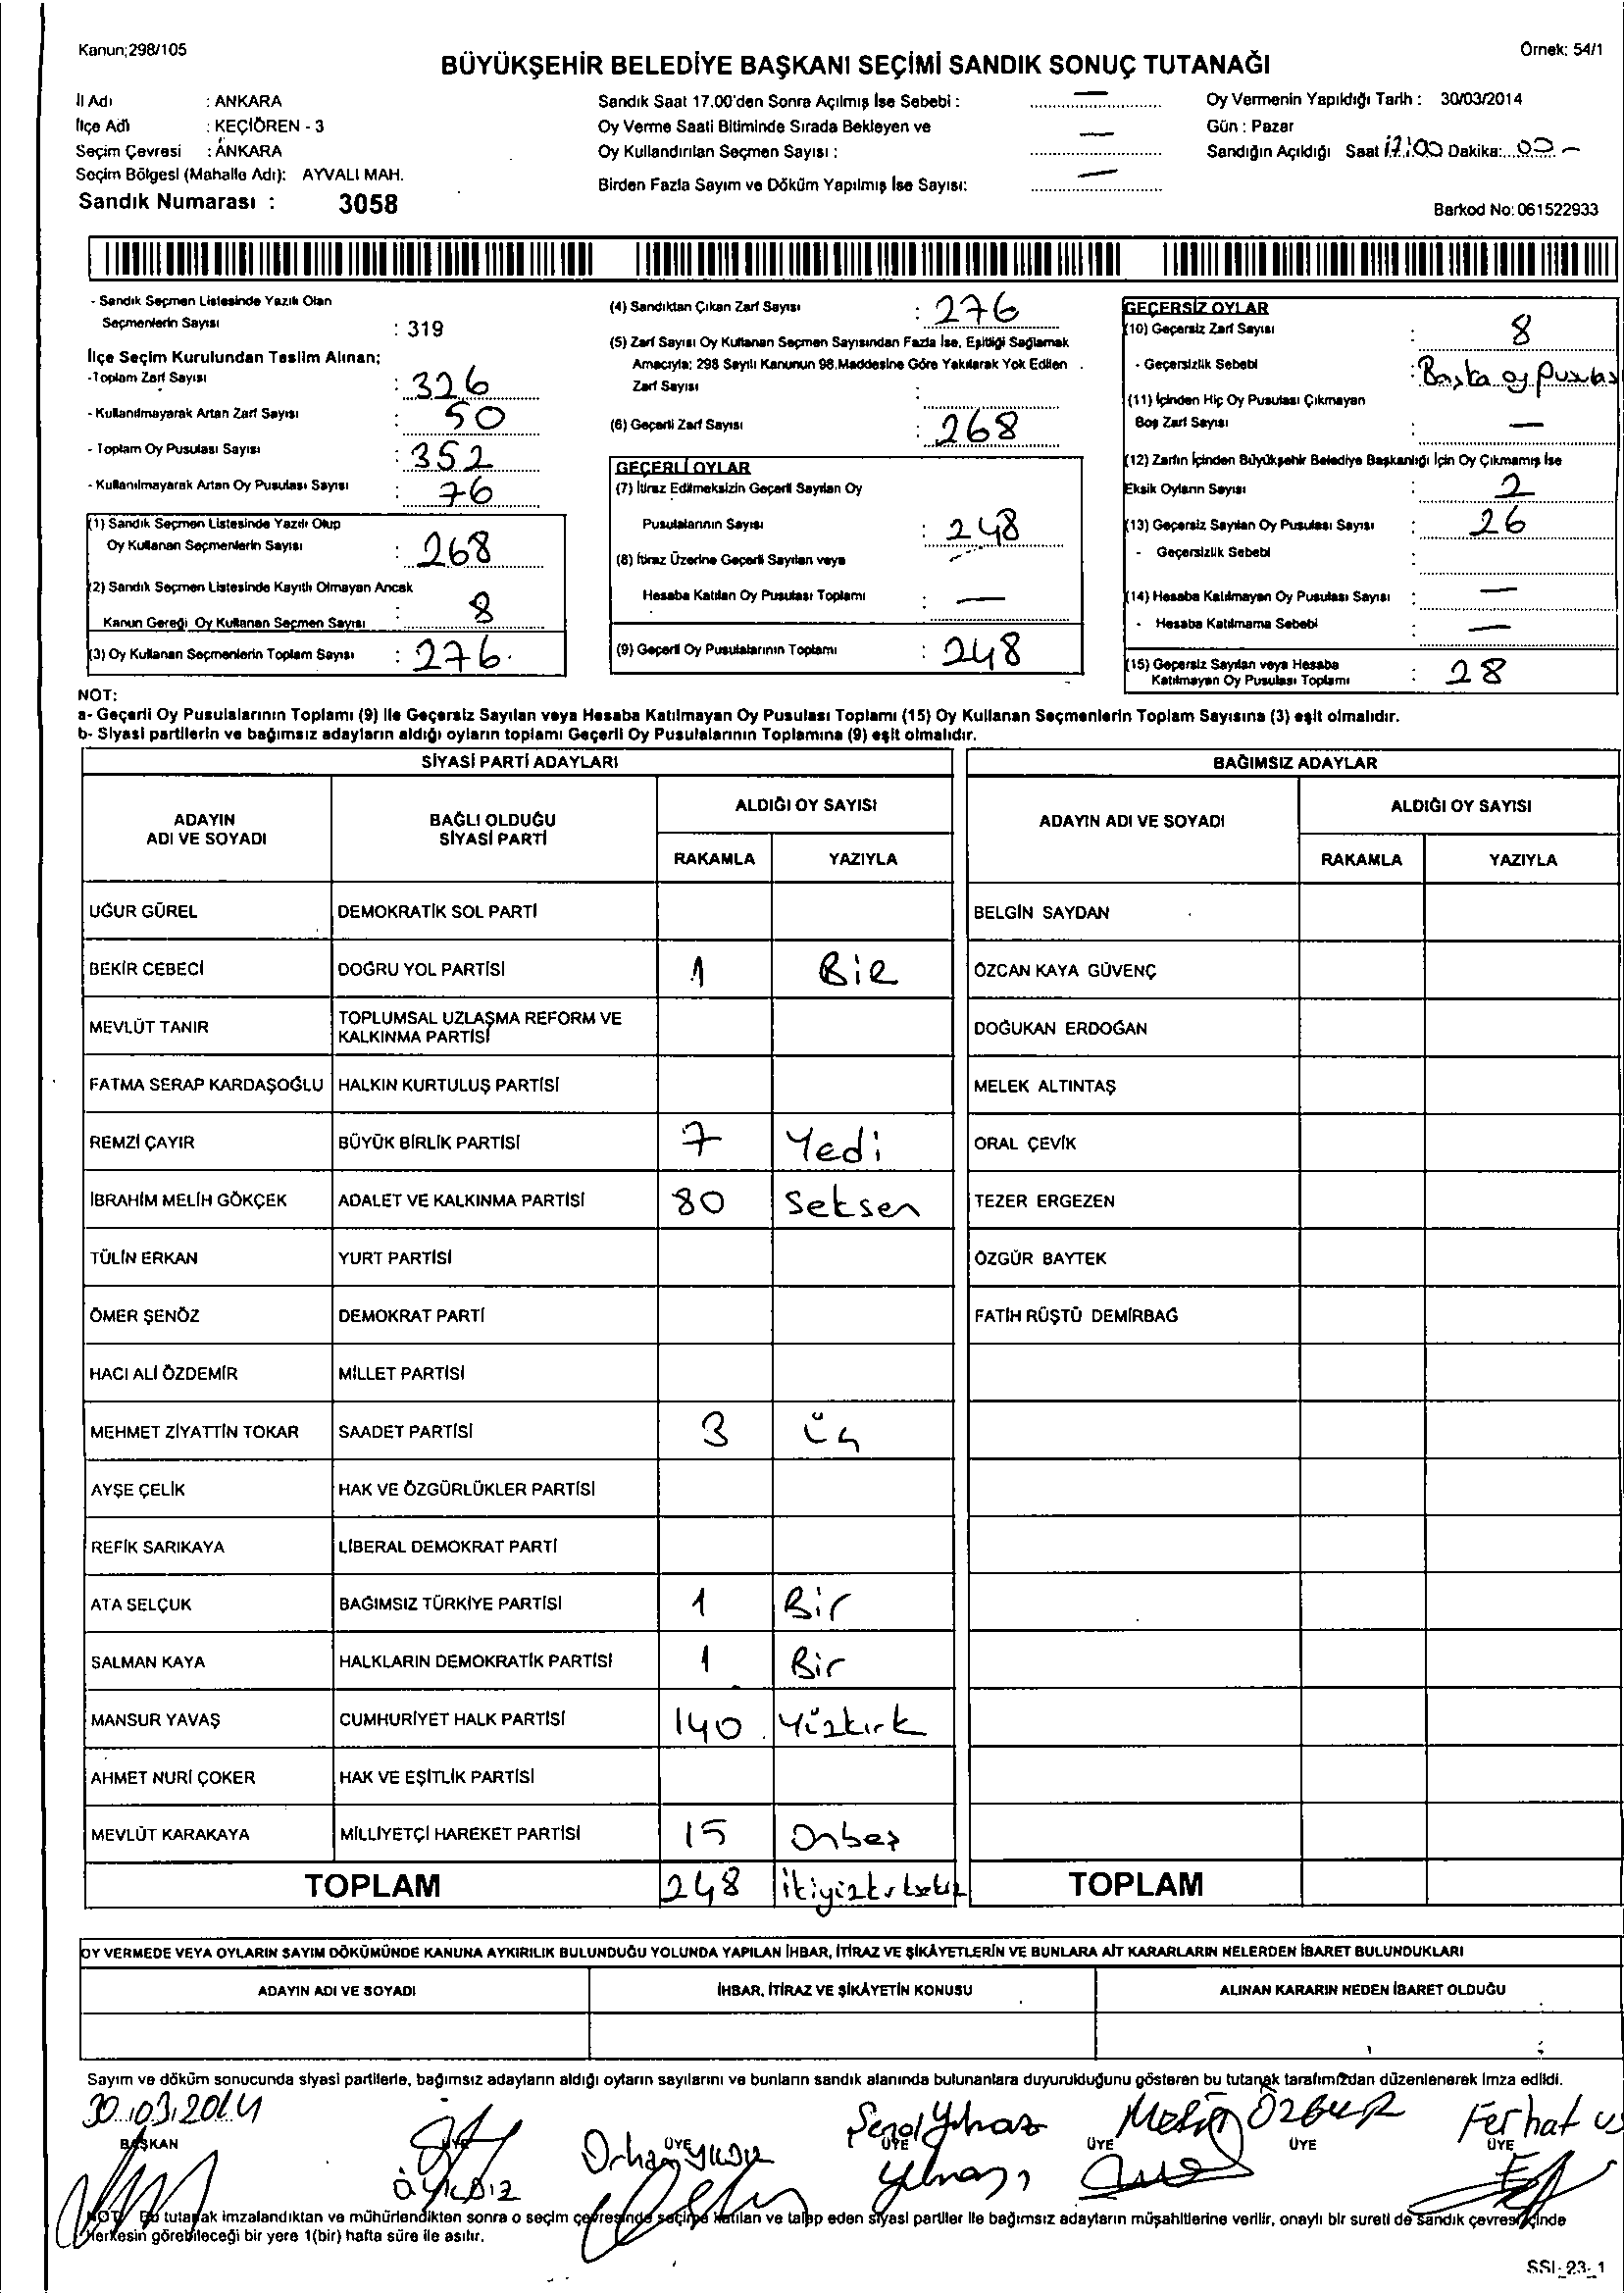 Kanun;298/105
Örnek: 54/1
BÜYÜKŞEHİR BELEDİYE BAŞKANI SEÇİMİ SANDIK SONUÇ TUTANAĞI
İl Adı : ANKARA
İlçe Adı : KEÇİÖREN - 3
Seçim Çevresi : ANKARA
Seçim Bölgesi (Mahalle Adı): AYVALI MAH.
Sandık Numarası : 3058
Sandık Saat 17.00'den Sonra Açılmış İse Sebebi : —
Oy Verme Saati Bitiminde Sırada Bekleyen ve
Oy Kullandırılan Seçmen Sayısı : —
Birden Fazla Sayım ve Döküm Yapılmış İse Sayısı: —
Oy Vermenin Yapıldığı Tarih : 30/03/2014
Gün : Pazar
Sandığın Açıldığı Saat 17:00 Dakika: 00 -
Barkod No: 061522933
- Sandık Seçmen Listesinde Yazılı Olan
Seçmenlerin Sayısı : 319
İlçe Seçim Kurulundan Teslim Alınan;
-Toplam Zarf Sayısı : 326
- Kullanılmayarak Artan Zarf Sayısı : 50
- Toplam Oy Pusulası Sayısı : 352
- Kullanılmayarak Artan Oy Pusulası Sayısı : 76
(1) Sandık Seçmen Listesinde Yazılı Olup
Oy Kullanan Seçmenlerin Sayısı : 268
(2) Sandık Seçmen Listesinde Kayıtlı Olmayan Ancak
Kanun Gereği Oy Kullanan Seçmen Sayısı : 8
(3) Oy Kullanan Seçmenlerin Toplam Sayısı : 276
(4) Sandıktan Çıkan Zarf Sayısı : 276
(5) Zarf Sayısı Oy Kullanan Seçmen Sayısından Fazla İse, Eşitliği Sağlamak
Amacıyla; 298 Sayılı Kanunun 98.Maddesine Göre Yakılarak Yok Edilen
Zarf Sayısı :
(6) Geçerli Zarf Sayısı : 268
GEÇERLİ OYLAR
(7) İtiraz Edilmeksizin Geçerli Sayılan Oy
Pusulalarının Sayısı : 248
(8) İtiraz Üzerine Geçerli Sayılan veya
Hesaba Katılan Oy Pusulası Toplamı : —
(9) Geçerli Oy Pusulalarının Toplamı : 248
GEÇERSİZ OYLAR
(10) Geçersiz Zarf Sayısı : 8
- Geçersizlik Sebebi : Başka oy pusulas
(11) İçinden Hiç Oy Pusulası Çıkmayan
Boş Zarf Sayısı : —
(12) Zarfın İçinden Büyükşehir Belediye Başkanlığı İçin Oy Çıkmamış İse
Eksik Oyların Sayısı : 2
(13) Geçersiz Sayılan Oy Pusulası Sayısı : 26
- Geçersizlik Sebebi :
(14) Hesaba Katılmayan Oy Pusulası Sayısı : —
- Hesaba Katılmama Sebebi : —
(15) Geçersiz Sayılan veya Hesaba
Katılmayan Oy Pusulası Toplamı : 28
NOT:
a- Geçerli Oy Pusulalarının Toplamı (9) ile Geçersiz Sayılan veya Hesaba Katılmayan Oy Pusulası Toplamı (15) Oy Kullanan Seçmenlerin Toplam Sayısına (3) eşit olmalıdır.
b- Siyasi partilerin ve bağımsız adayların aldığı oyların toplamı Geçerli Oy Pusulalarının Toplamına (9) eşit olmalıdır.
SİYASİ PARTİ ADAYLARI
ADAYIN ADI VE SOYADI
BAĞLI OLDUĞU SİYASİ PARTİ
ALDIĞI OY SAYISI
RAKAMLA YAZIYLA
UĞUR GÜREL DEMOKRATİK SOL PARTİ
BEKİR CEBECİ DOĞRU YOL PARTİSİ 1 Bir
MEVLÜT TANIR TOPLUMSAL UZLAŞMA REFORM VE
KALKINMA PARTİSİ
FATMA SERAP KARDAŞOĞLU HALKIN KURTULUŞ PARTİSİ
REMZİ ÇAYIR BÜYÜK BİRLİK PARTİSİ 7 Yedi
İBRAHİM MELİH GÖKÇEK ADALET VE KALKINMA PARTİSİ 80 Seksen
TÜLİN ERKAN YURT PARTİSİ
ÖMER ŞENÖZ DEMOKRAT PARTİ
HACI ALİ ÖZDEMİR MİLLET PARTİSİ
MEHMET ZİYATTİN TOKAR SAADET PARTİSİ 3 Üç
AYŞE ÇELİK HAK VE ÖZGÜRLÜKLER PARTİSİ
REFİK SARIKAYA LİBERAL DEMOKRAT PARTİ
ATA SELÇUK BAĞIMSIZ TÜRKİYE PARTİSİ 1 Bir
SALMAN KAYA HALKLARIN DEMOKRATİK PARTİSİ 1 Bir
MANSUR YAVAŞ CUMHURİYET HALK PARTİSİ 140 Yüzkırk
AHMET NURİ ÇOKER HAK VE EŞİTLİK PARTİSİ
MEVLÜT KARAKAYA MİLLİYETÇİ HAREKET PARTİSİ 15 Onbeş
TOPLAM 248
BAĞIMSIZ ADAYLAR
ADAYIN ADI VE SOYADI
ALDIĞI OY SAYISI
RAKAMLA YAZIYLA
BELGİN SAYDAN
ÖZCAN KAYA GÜVENÇ
DOĞUKAN ERDOĞAN
MELEK ALTINTAŞ
ORAL ÇEVİK
TEZER ERGEZEN
ÖZGÜR BAYTEK
FATİH RÜŞTÜ DEMİRBAĞ
TOPLAM
OY VERMEDE VEYA OYLARIN SAYIM DÖKÜMÜNDE KANUNA AYKIRILIK BULUNDUĞU YOLUNDA YAPILAN İHBAR, İTİRAZ VE ŞİKÂYETLERİN VE BUNLARA AİT KARARLARIN NELERDEN İBARET BULUNDUKLARI
ADAYIN ADI VE SOYADI İHBAR, İTİRAZ VE ŞİKÂYETİN KONUSU ALINAN KARARIN NEDEN İBARET OLDUĞU
Sayım ve döküm sonucunda siyasi partilerle, bağımsız adayların aldığı oyların sayılarını ve bunların sandık alanında bulunanlara duyurulduğunu gösteren bu tutanak tarafımızdan düzenlenerek imza edildi.
30.03.2014
Şenol Yılmaz Metin Özgür Ferhat
BAŞKAN ÜYE ÜYE ÜYE ÜYE ÜYE ÜYE
Orhan
NOT: Bu tutanak imzalandıktan ve mühürlendikten sonra o seçim çevresinde seçime katılan ve talep eden siyasi partiler ile bağımsız adayların müşahitlerine verilir, onaylı bir sureti de sandık çevresi içinde
herkesin görebileceği bir yere 1(bir) hafta süre ile asılır.
SSI-23-1